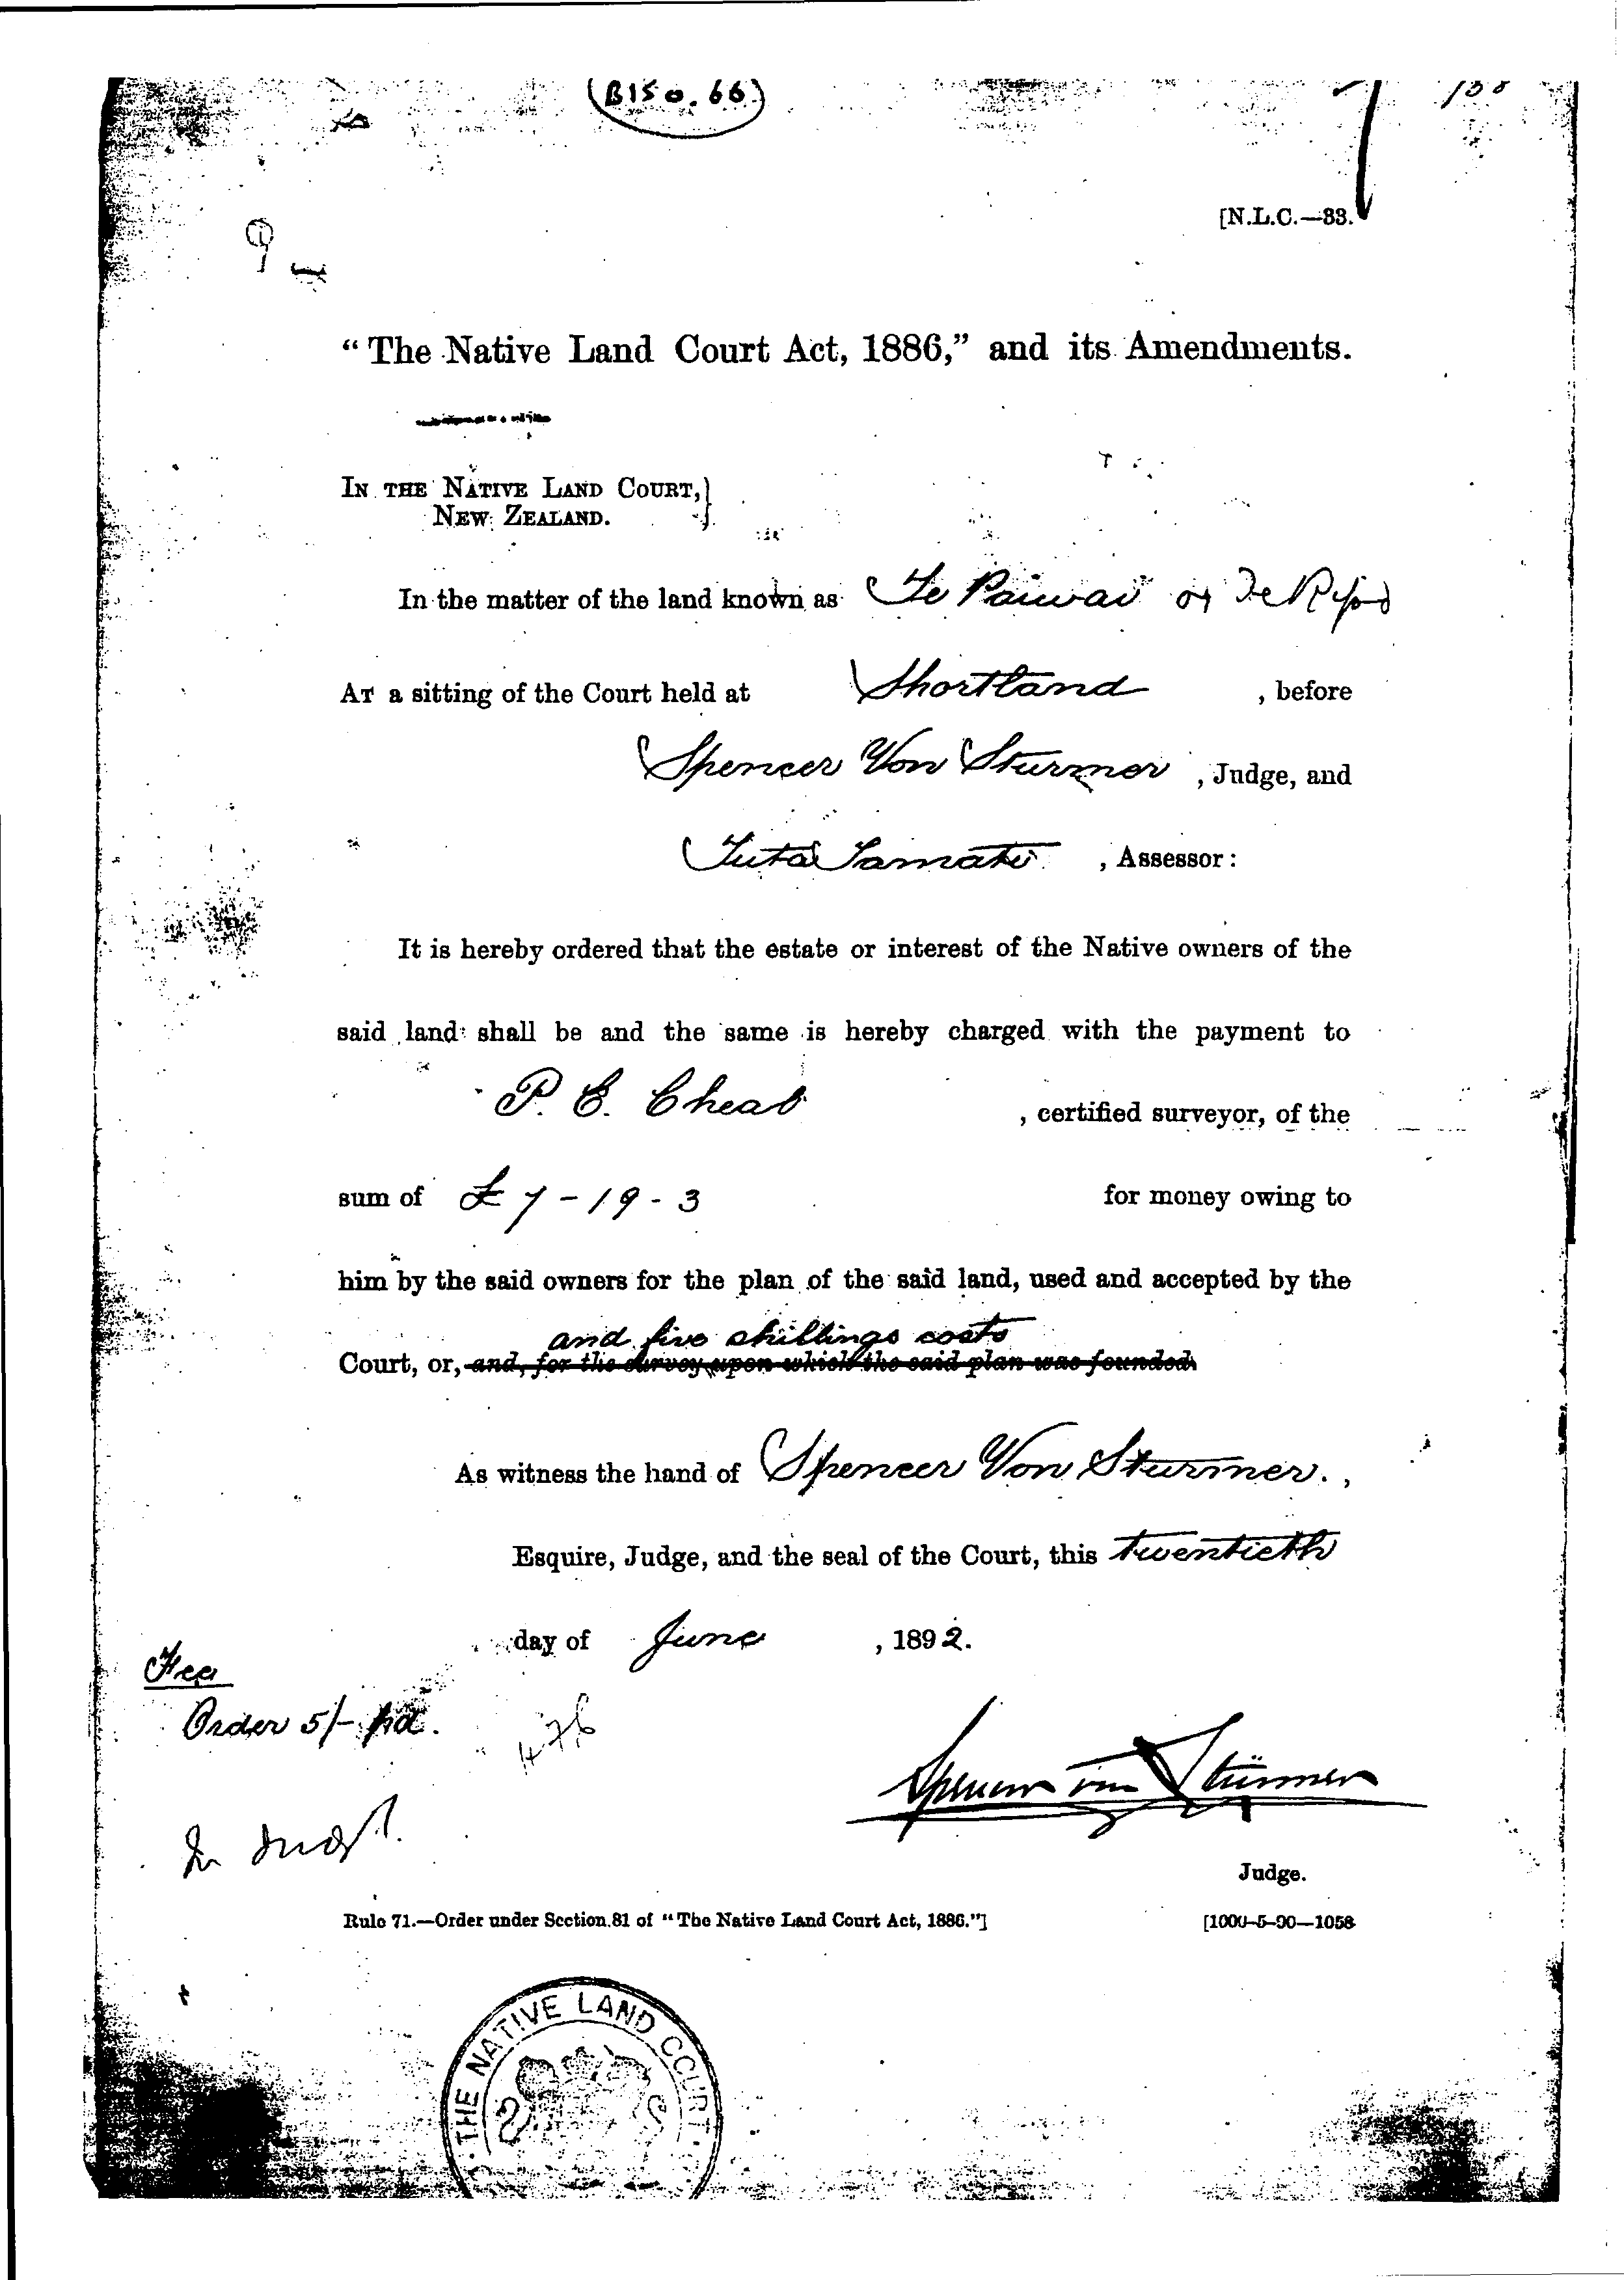 (B150.66)
[N.L.C.—33.
"The Native Land Court Act, 1886," and its Amendments.
IN THE NATIVE LAND COURT,}
NEW ZEALAND.
In the matter of the land known as Te Paiwai or Te
At a sitting of the Court held at Shortland, before
Spencer Von Sturmer, Judge, and
Tuta Tamati, Assessor:
It is hereby ordered that the estate or interest of the Native owners of the
said land shall be and the same is hereby charged with the payment to
P. E. Cheal, certified surveyor, of the
sum of £7-19-3 for money owing to
him by the said owners for the plan of the said land, used and accepted by the
and five shillings costs
Court, or, and, for the survey upon which the said plan was founded.
As witness the hand of Spencer Von Sturmer.,
Esquire, Judge, and the seal of the Court, this twentieth
day of June, 1892.
Fees
Order 5/- pd.
476
Spencer von Stürmer
Judge.
Rule 71.—Order under Section 81 of "The Native Land Court Act, 1886."]
[1000-5-90—1058
THE NATIVE LAND COURT